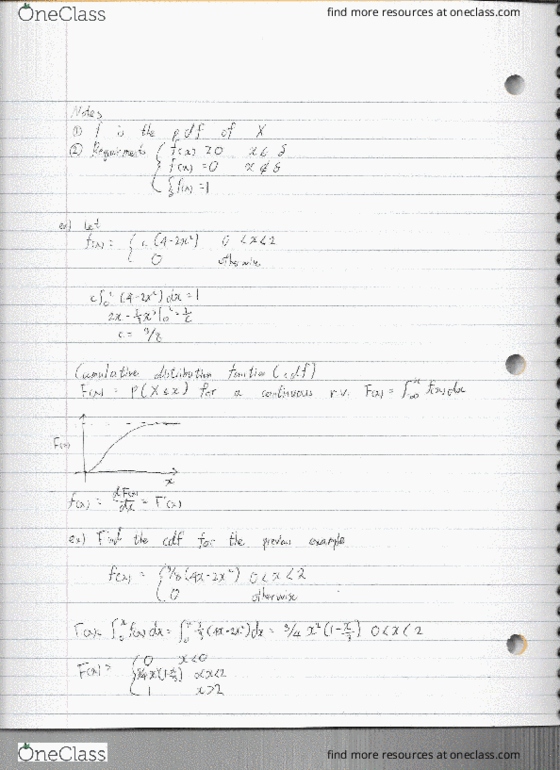 OneClass
find more resources at oneclass.com
Notes
① f is the pdf of X
② Requirements { f(x) ≥ 0 x ∈ S
f(x) = 0 x ∉ S
∫s f(x) = 1
ex) Let
f(x) = { c (4-2x²) 0 < x < 2
0 otherwise
c∫₀² (4-2x²) dx = 1
c = 3/8
Cumulative distribution function (cdf)
F(x) = P(X ≤ x) for a continuous r.v. F(x) = ∫ f(x) dx
F(x)
x
f(x) = dF(x)/dx = F'(x)
ex) Find the cdf for the previous example
f(x) = { 3/8 (4x-2x²) 0 < x < 2
0 otherwise
F(x) = ∫₀ˣ f(x) dx = ∫₀ˣ 3/8 (4x-2x²) dx = 3/4 x² (1-x/3) 0 < x < 2
F(x) = { 0 x < 0
3/4 x² (1-x/3) 0<x<2
1 x > 2
OneClass
find more resources at oneclass.com